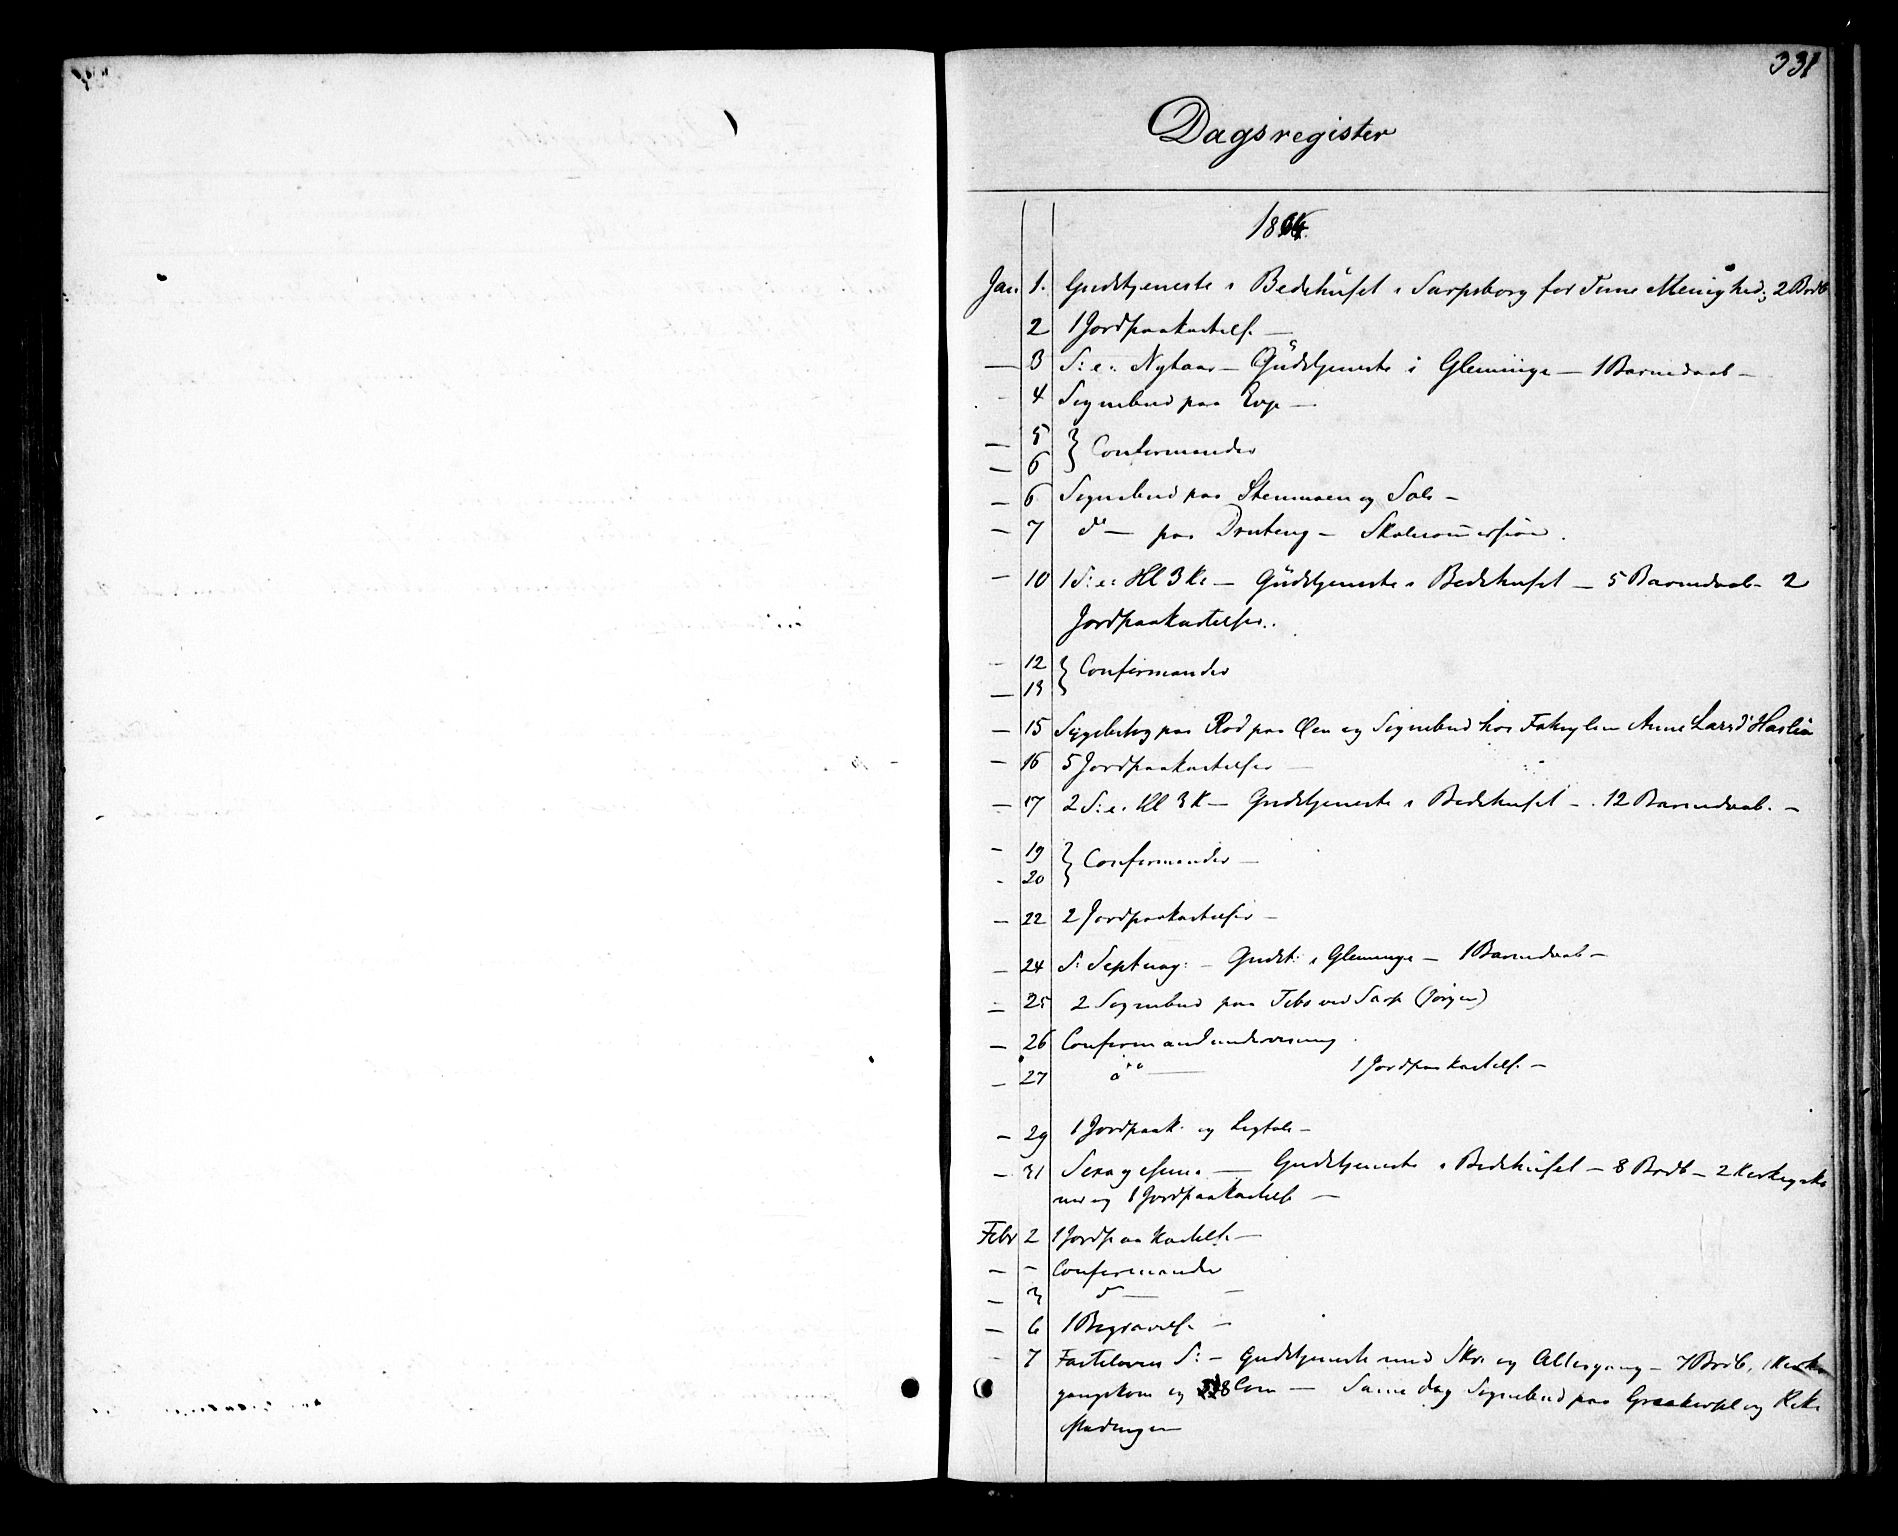 331
Dagsregister
1864
Jan. 1. Gudstjeneste i Bedehuset i Sarpsborg for Tune Menighed; 2 Brdb
2 1 Jordpaakastelse —
— 3 S: e: Nytaar — Gudstjeneste i Glemminge — 1 Barnedaab —
- 4 Sognebud paa Evje —
— 5
— 6 } Confirmander
— 6 Sognebud paa og —
— 7 do — paa — .
— 10 1 S: e: Hl 3 K: — Gudstjeneste i Bedehuset — 5 Barnedaab — 2
Jordpaakastelser.
— 12
— 13 } Confirmander
— 15 Sygebesøg paa Rød paa Øen og Sognebud hos Anne Larsd
— 16 5 Jordpaakastelser —
— 17 2 S: e. Hl 3 K — Gudstjeneste i Bedehuset — 12 Barnedaab. —
— 19
- 20 } Confirmander —
— 22 2 Jordpaakastelser —
— 24 S: Septuag: — Gudst: i Glemminge — 1 Barnedaab —
— 25 2 Sognebud paa ved Sarp (Jørgen)
— 26 Confirmandundervisning
— 27 do — 1 Jordpaakastelse —
— 29 1 Jordpaak. og Ligtale —
— 31 Sexagesima — Gudstjeneste i Bedehuset — 8 Brdb — 2
og 1 Jordpaakastelse —
Febr 2 1 Jordpaakastelse —
— - Confirmander
— 3 d — —
— 6 1 Begravelse —
- 7 Fastelavns S: — Gudstjeneste med Skr: og Altergang — 7 Brdb, 1 Kirke
gangskone og Com — Samme dag Sognebud paa og